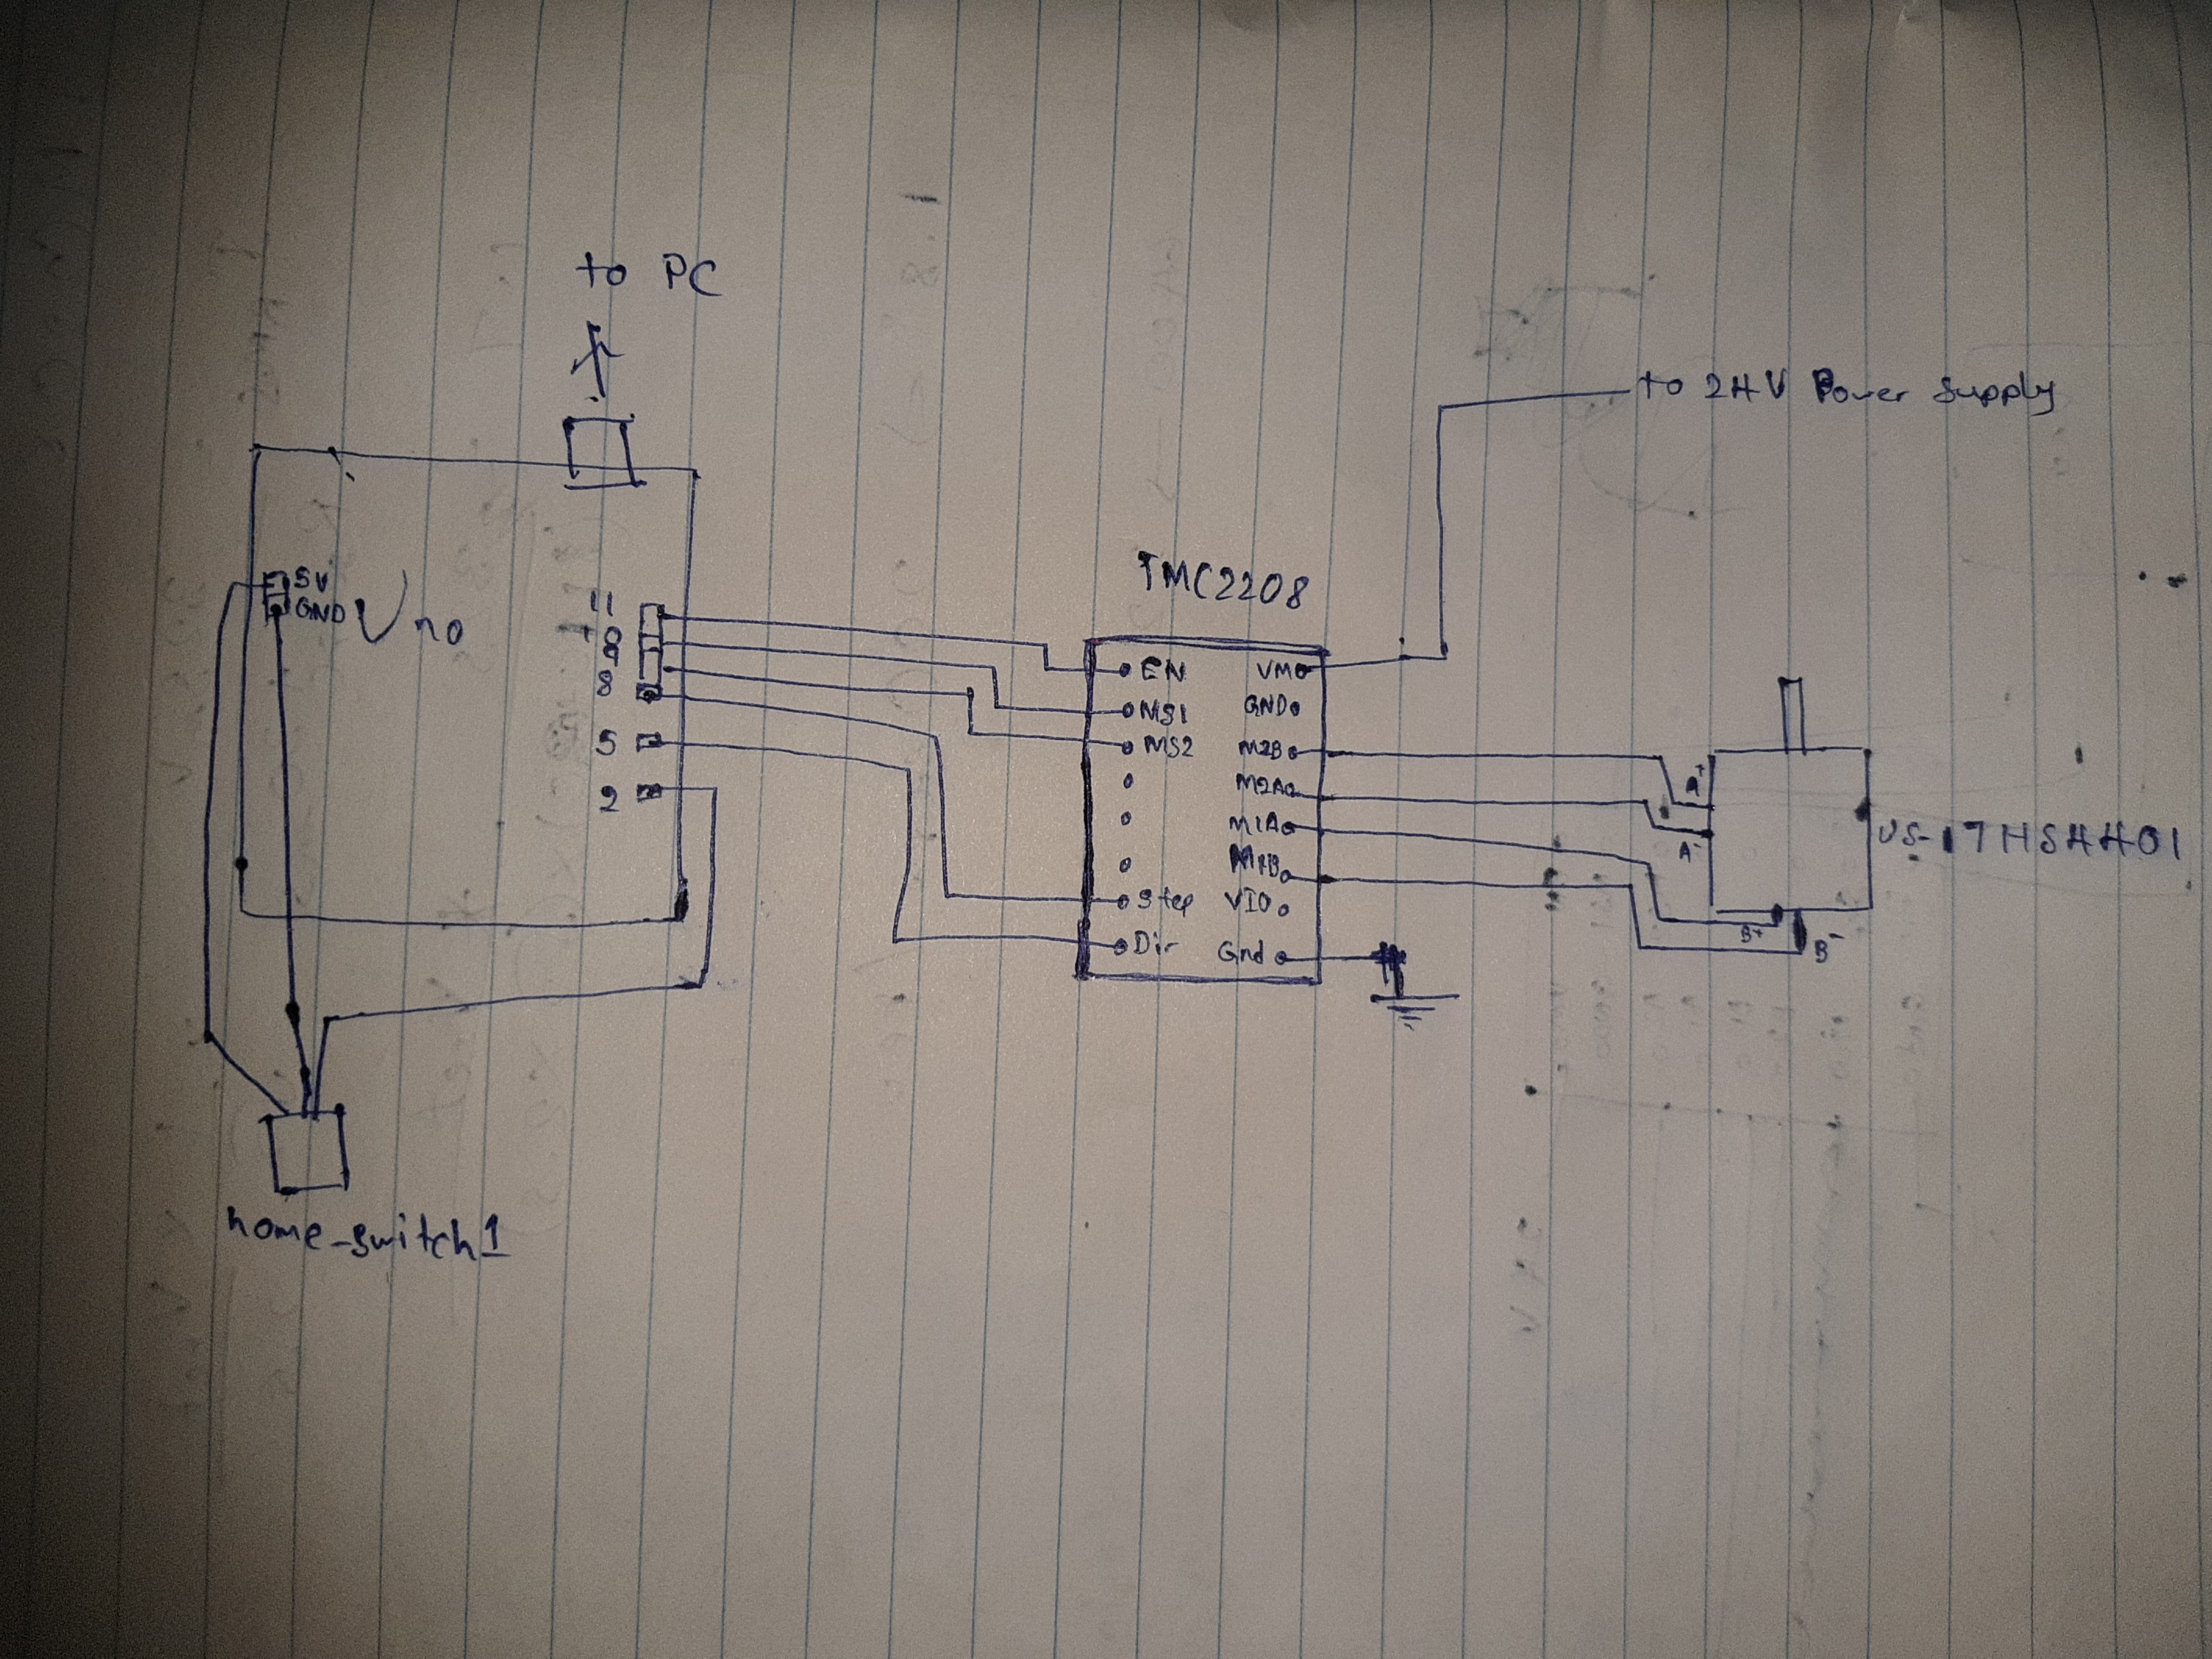 to PC
to 24V Power Supply
TMC2208
5V
GND
Uno
11
10
9
8
5
2
EN VM
MS1 GND
MS2 M2B
M2A
M1A
M1B
Step VIO
Dir Gnd
A+
A-
B+
B-
US-17HS4401
home-switch1